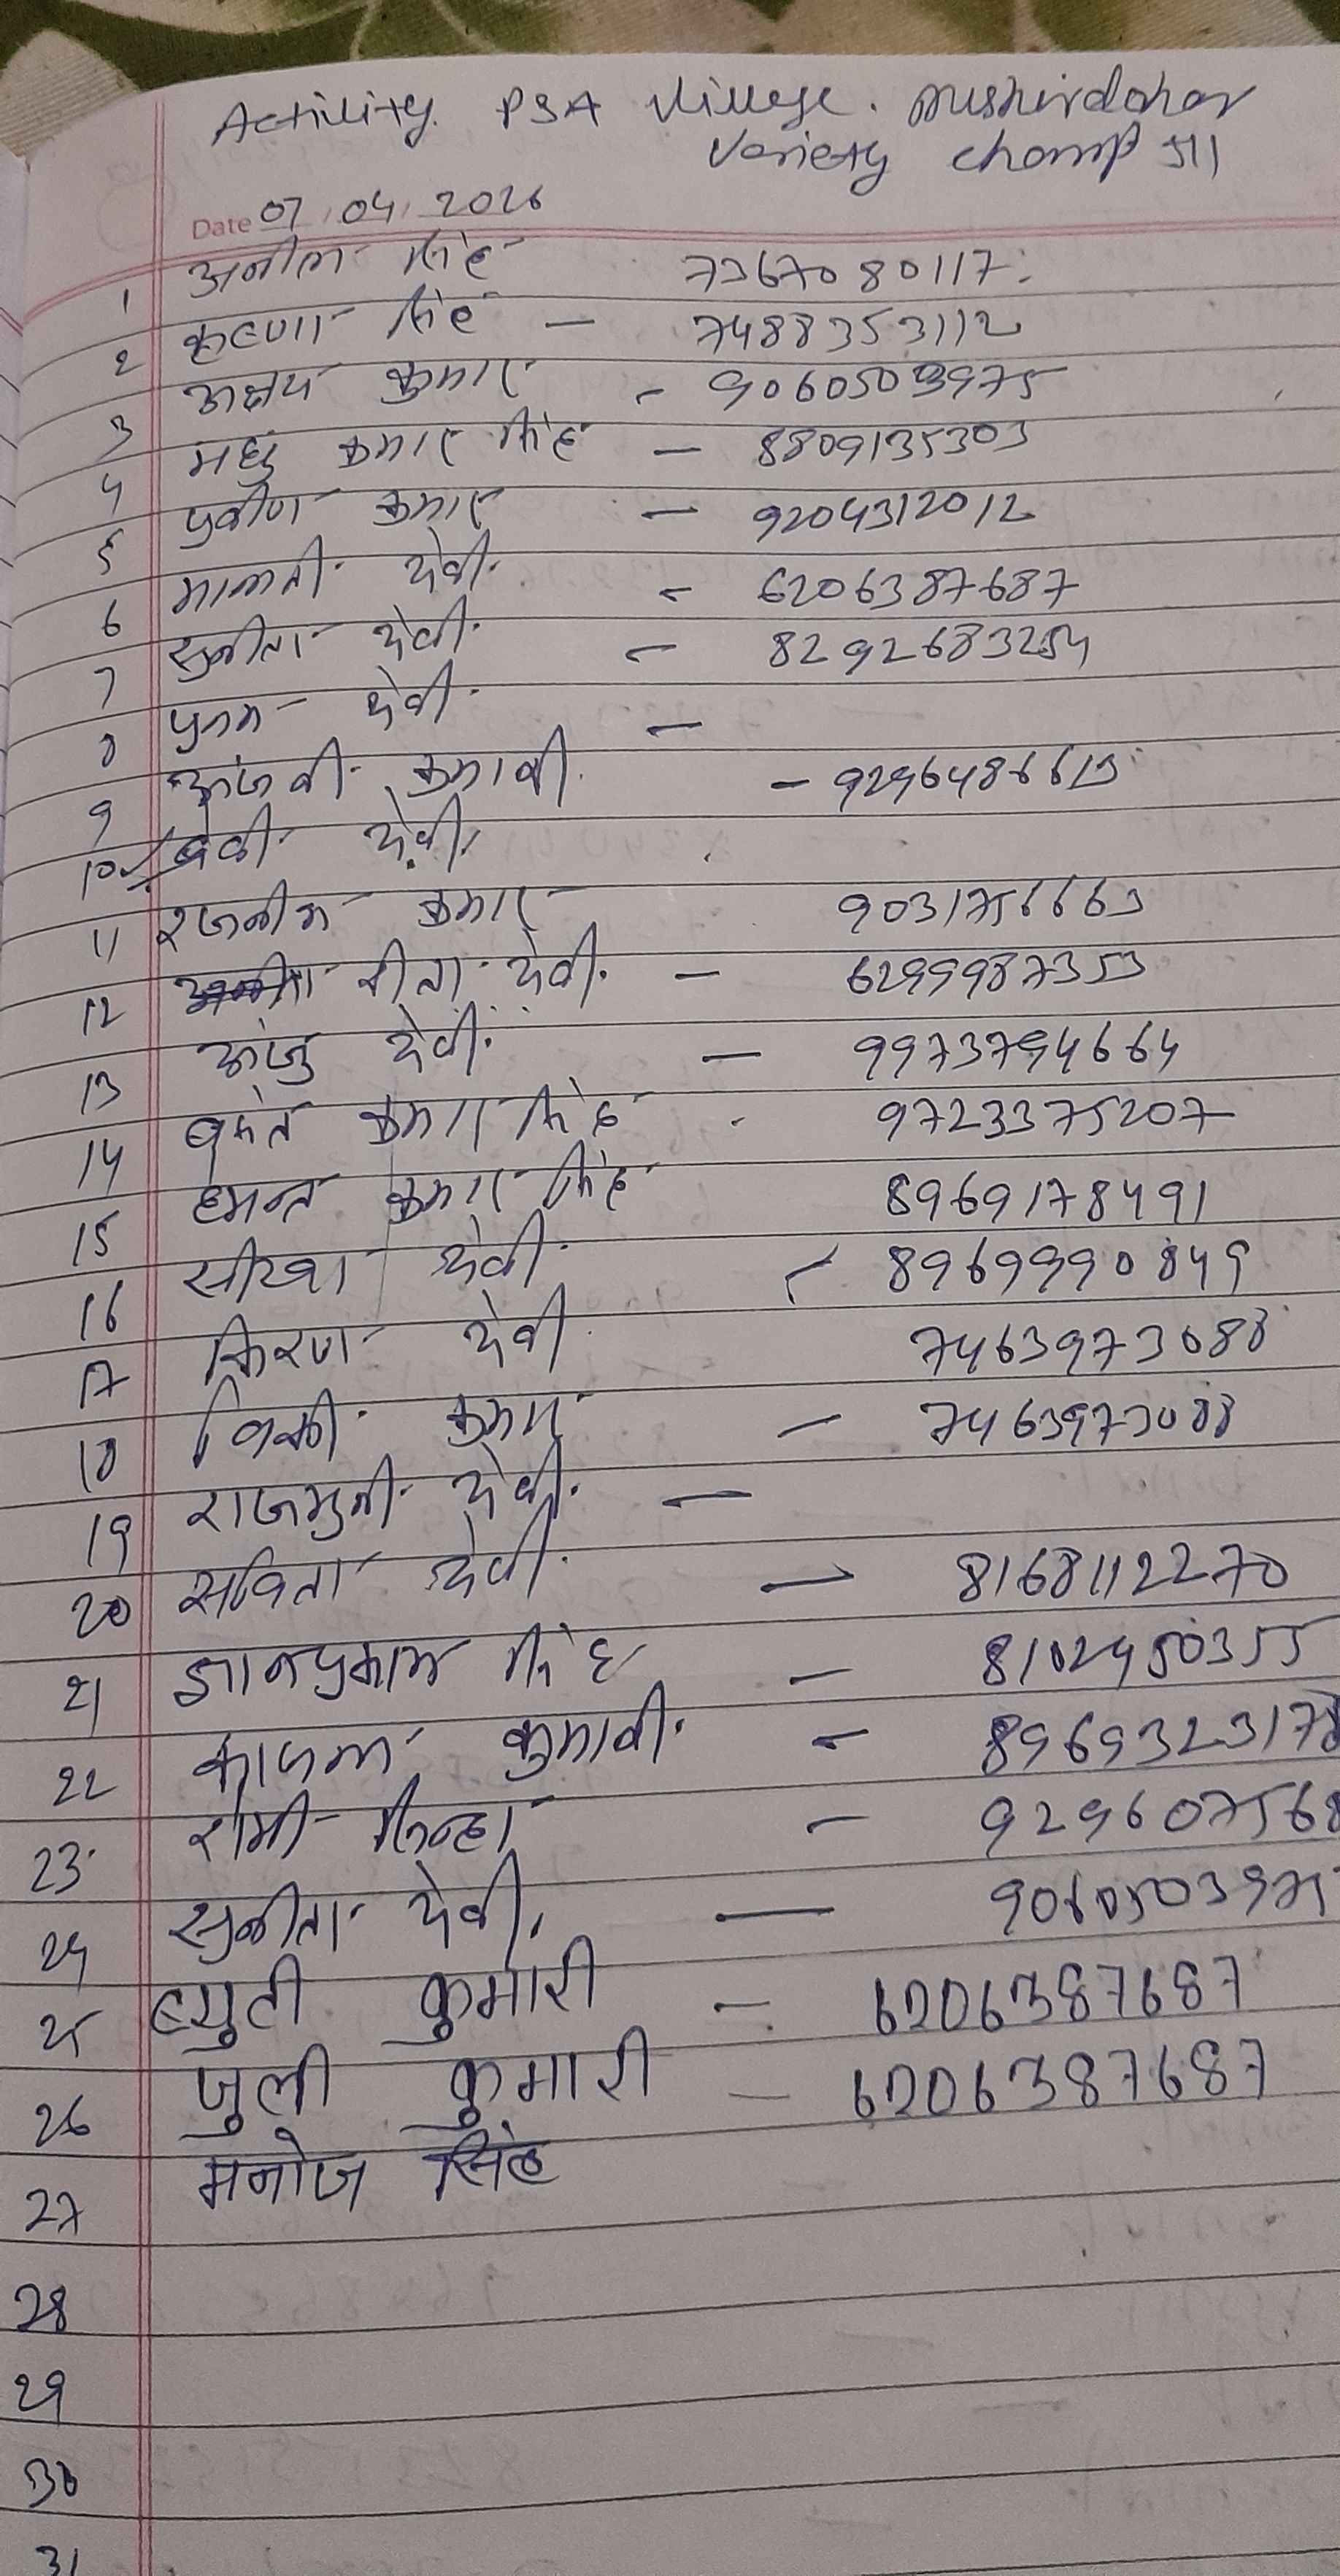 Activity PSA Village. Mushirdahar
Variety champ 511
Date 07/04/2026
1 अनील सिंह 7367080117
2 कृष्णा सिंह — 7488353112
3 अक्षय कुमार - 9060503975
4 मधु कुमार सिंह — 8809135303
5 प्रवीण कुमार — 9204312012
6 मालती देवी - 6206387687
7 सुनीता देवी - 8292683254
8 पुनम देवी —
9 कुमारी - 9296486613
10 बेबी देवी
11 रजनीश कुमार 9031756663
12 रीता देवी — 6299987353
13 अंजु देवी — 9973794664
14 कुमार सिंह - 9723375207
15 हेमन्त कुमार सिंह 8969178491
16 देवी - 8969990849
17 किरण देवी 7463973088
18 विक्की कुमार - 7463973088
19 राजमुनी देवी —
20 सविता देवी — 8168112270
21 ज्ञानप्रकाश सिंह — 8102450355
22 काजल कुमारी - 8969323178
23 रोमी सिन्हा - 929607568
24 सुनीता देवी — 906050397
25 ब्युटी कुमारी — 6206387687
26 जुली कुमारी — 6206387687
27 मनोज सिंह
28
29
30
31